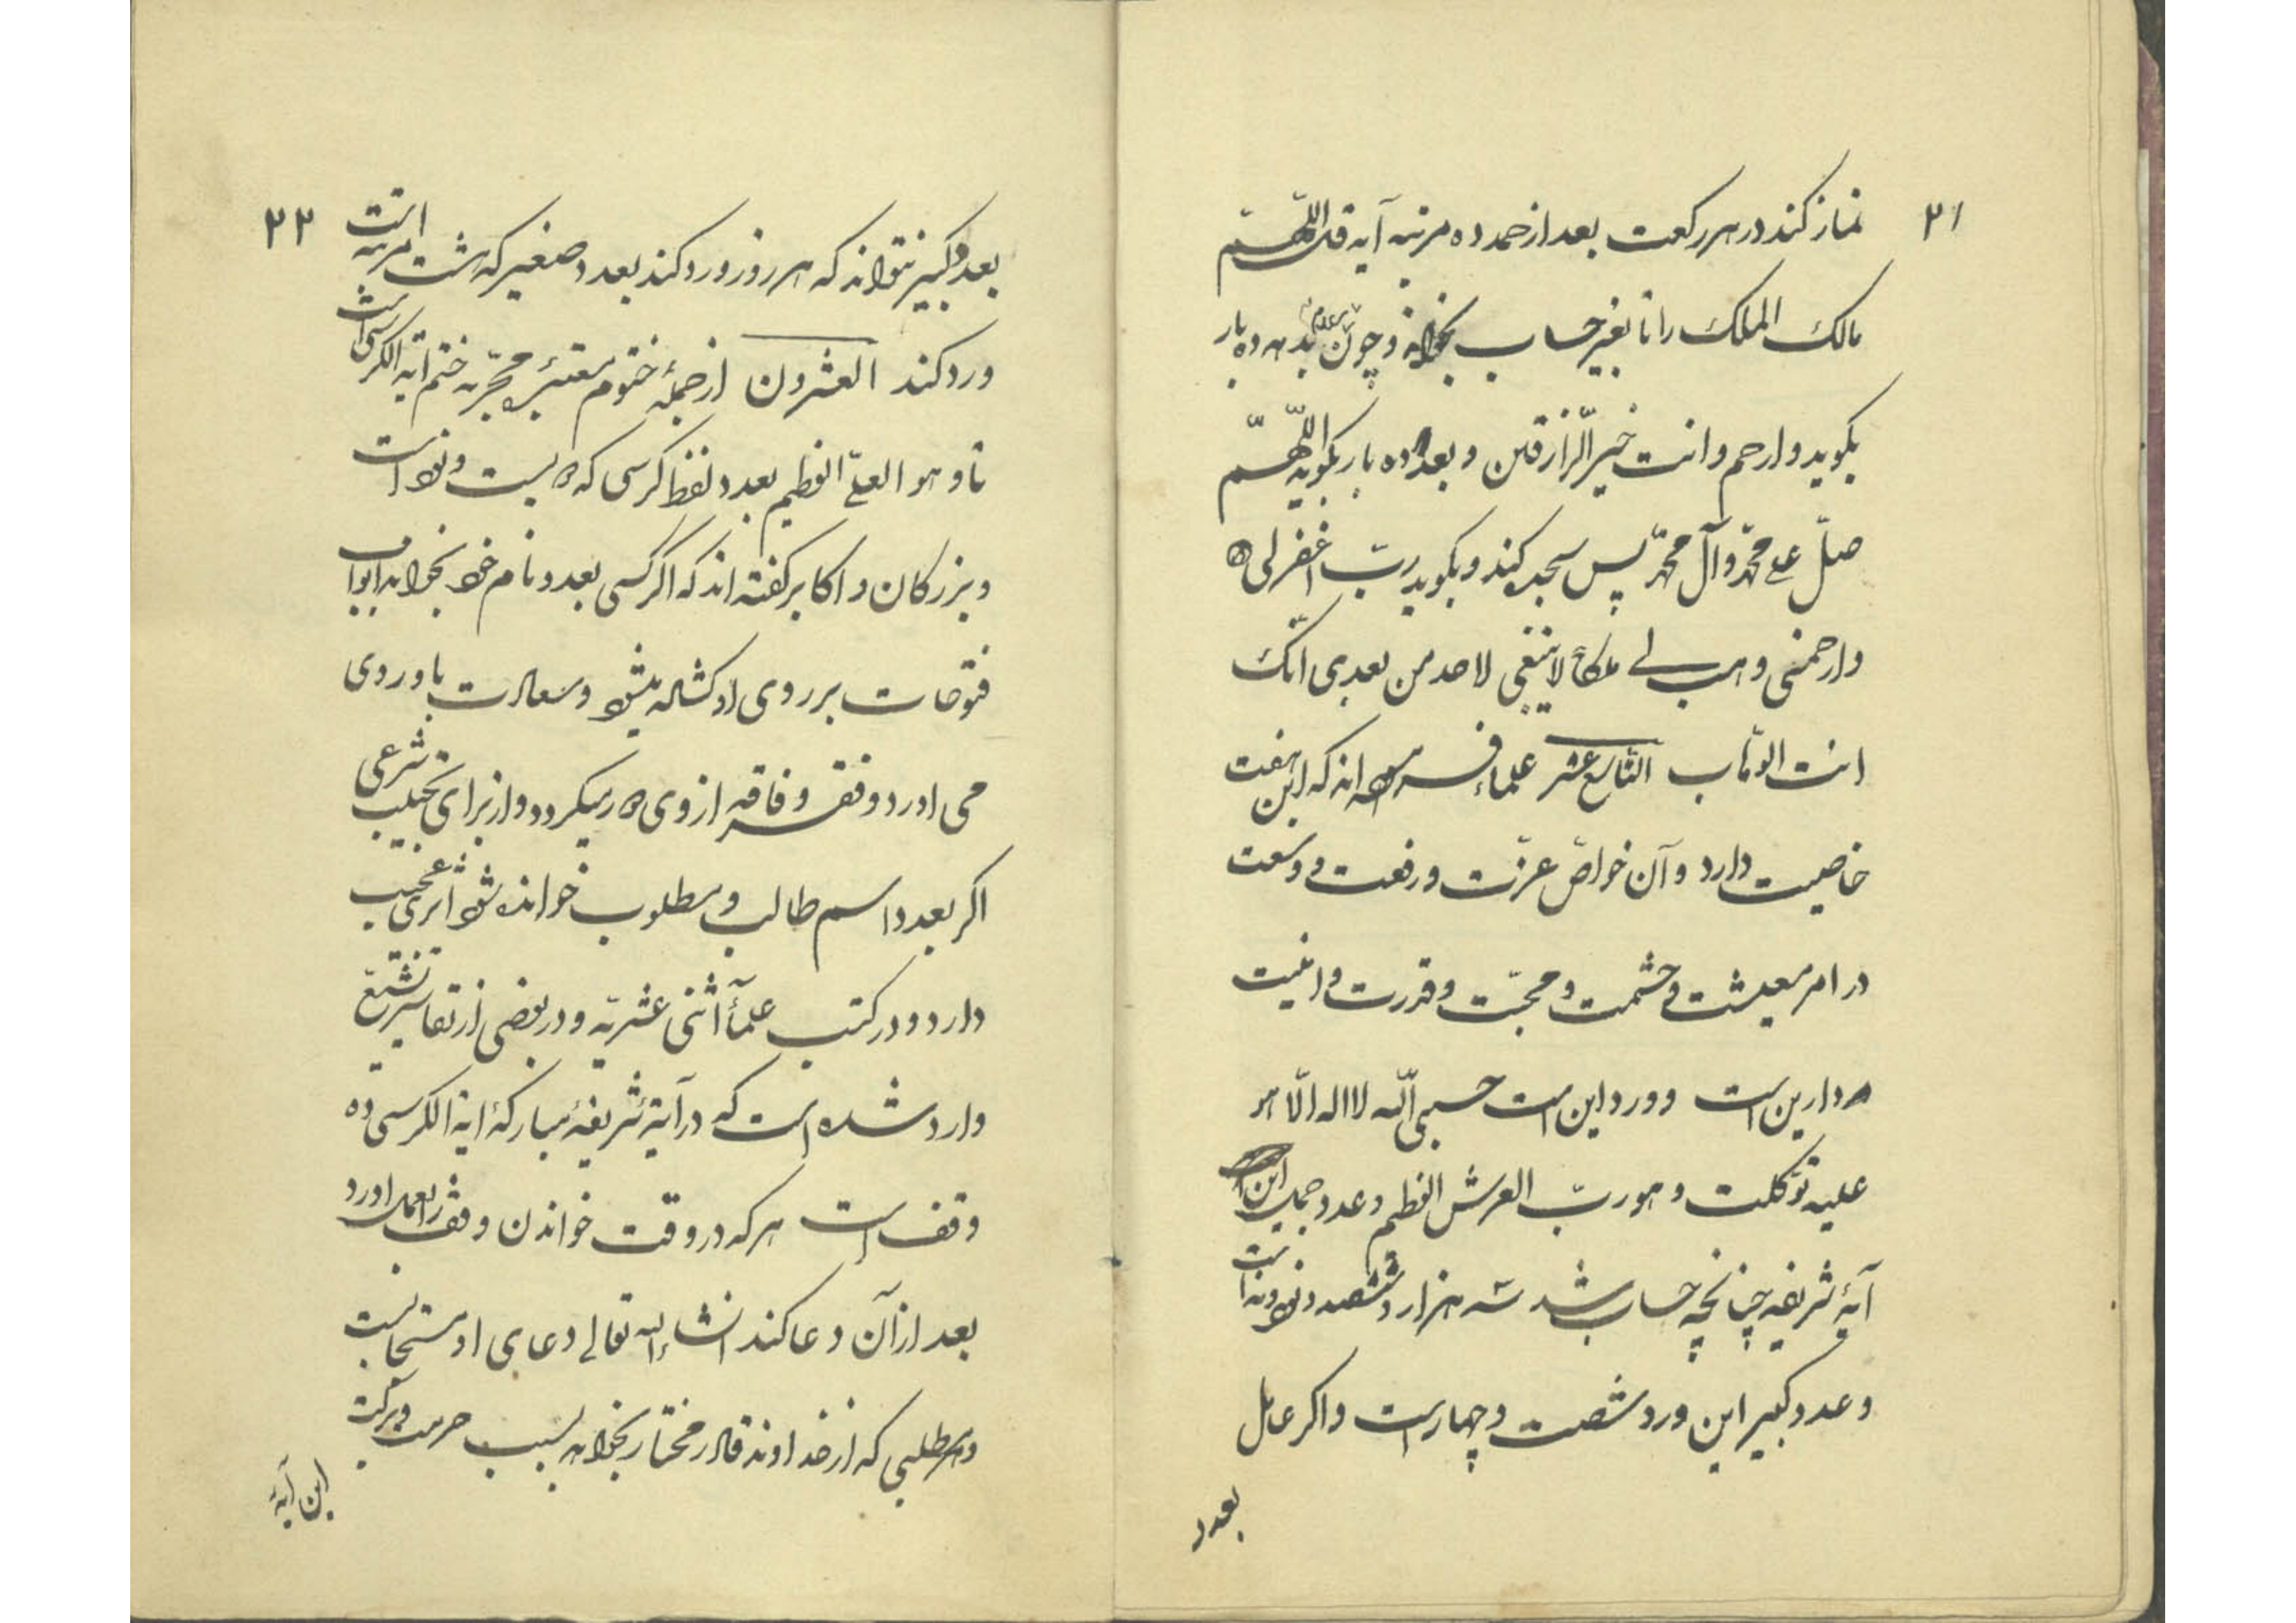 ۲۱
نماز کند در هر رکعت بعد از حمد ده مرتبه آیه قل اللّهمّ
مالک الملک را تا بغیر حساب بخواند و چون سلام بدهد ده بار
بکوید وارحم وانت خیر الرّازقین و بعد ده بار بکوید اللّهمّ
صلّ علی محمّد وآل محمّد پس سجده کند و بکوید ربّ اغفر لی
وارحمنی وهب لی ملکاً لاینبغی لاحد من بعدی انّک
انت الوهّاب التّاسع عشر علماء فرموده اند که این هفت
خاصیت دارد و آن خواصّ عزّت و رفعت و وسعت
در امر معیشت و حشمت و محبّت و قدرت و امنیت
دارین است و ورد این است حسبی اللّه لا اله الّا هو
علیه توکّلت وهو ربّ العرش العظیم وعدد جمل این
آیهٔ شریفه چنانچه حساب شد سه هزار و ششصد و نود و نه است
وعدد کبیر این ورد شصت و چهار است واکر عامل
بعدد
۲۲
بعدد کبیر نتواند که هر روز ورد کند بعدد صغیر که هشت مرتبه است
ورد کند العشرون از جملهٔ ختوم معتبرهٔ مجرّبه ختم ایة الکرسی است
تا و هو العلیّ العظیم بعدد لفظ کرسی که دویست و نود است
و بزرکان و اکابر کفته اند که اکر کسی بعدد نام خود بخواند ابواب
فتوحات بر روی او کشاده میشود و سعادت باو روی
می اورد و فقر و فاقه از وی دور میکردد و از برای تحبیب شرعی
اکر بعدد اسم طالب و مطلوب خوانده شود اثری عجیب
دارد و در کتب علمآء اثنی عشریّه و در بعضی از تفاسیر تشیّع
وارد شده است که در آیهٔ شریفهٔ مبارکهٔ ایة الکرسی ده
وقف است هر که در وقت خواندن وقف را بعمل اورد
بعد از آن دعا کند انشاء الله تعالی دعای او مستجابست
و هر مطلبی که از خداوند قادر مختار بخواهد بسبب حرمت و برکت
این آیهٔ